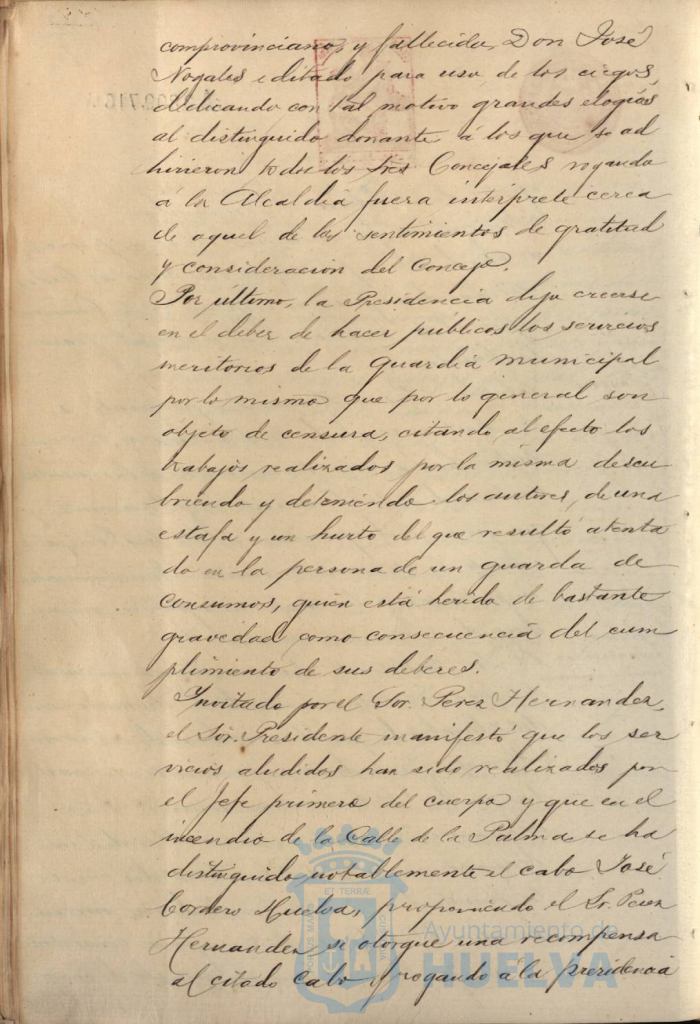 comprovinciano, y fallecido, Don José
Nogales editado para uso, de los ciegos,
dedicando con tal motivo grandes elogios
al distinguido donante á los que se ad
hirieron todos los tres Concejales rogando
á la Alcaldia fuera intérprete cerca
de aquel de los sentimientos de gratitud
y consideración del Concejo.
Por último, la Presidencia dijo creerse
en el deber de hacer públicos los servicios
meritorios de la guardia municipal
por lo mismo que por lo general son
objeto de censura, citando al efecto los
trabajos realizados por la misma descu
briendo y deteniendo los autores, de una
estafa y un hurto del que resultó atenta
do en la persona de un guarda de
consumos, quien está herido de bastante
gravedad como consecuencia del cum
plimiento de sus deberes.
Invitado por el Sor. Perez Hernandez,
el Sor. Presidente manifestó que los ser
vicios aludidos han sido realizados por
el Jefe primero del cuerpo y que en el
incendio de la Calle de la Palma, se ha
distinguido notablemente el cabo José
Cordero Huelva, proponiendo el Sr. Perez
Hernandez se otorgue una recompensa
al citado Cabo y rogando á la presidencia
Ayuntamiento de
HUELVA